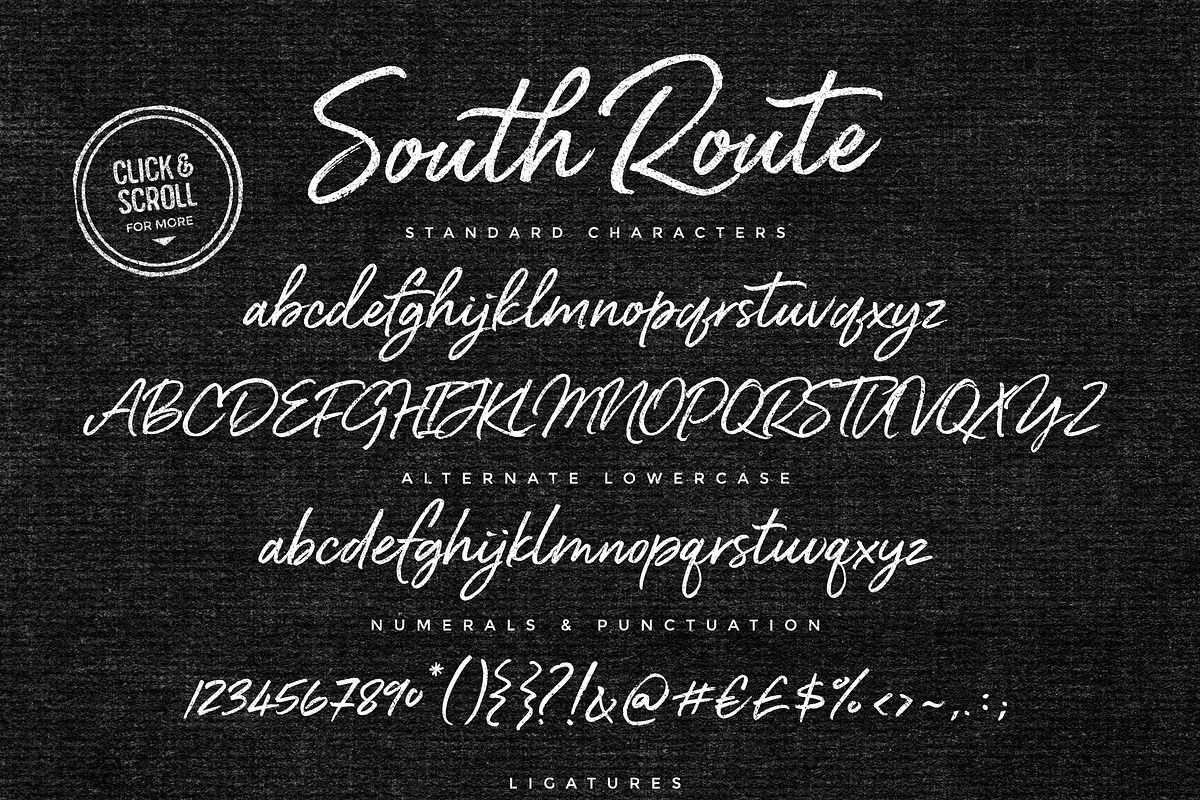 South Route
CLICK &
SCROLL
FOR MORE
STANDARD CHARACTERS
abcdefghijklmnopqrstuvqxyz
ABCDEFGHIJKLMNOPQRSTUVQXYZ
ALTERNATE LOWERCASE
abcdefghijklmnopqrstuvqxyz
NUMERALS & PUNCTUATION
1234567890*(){}?!&@#€£$%<>~,.:;
LIGATURES